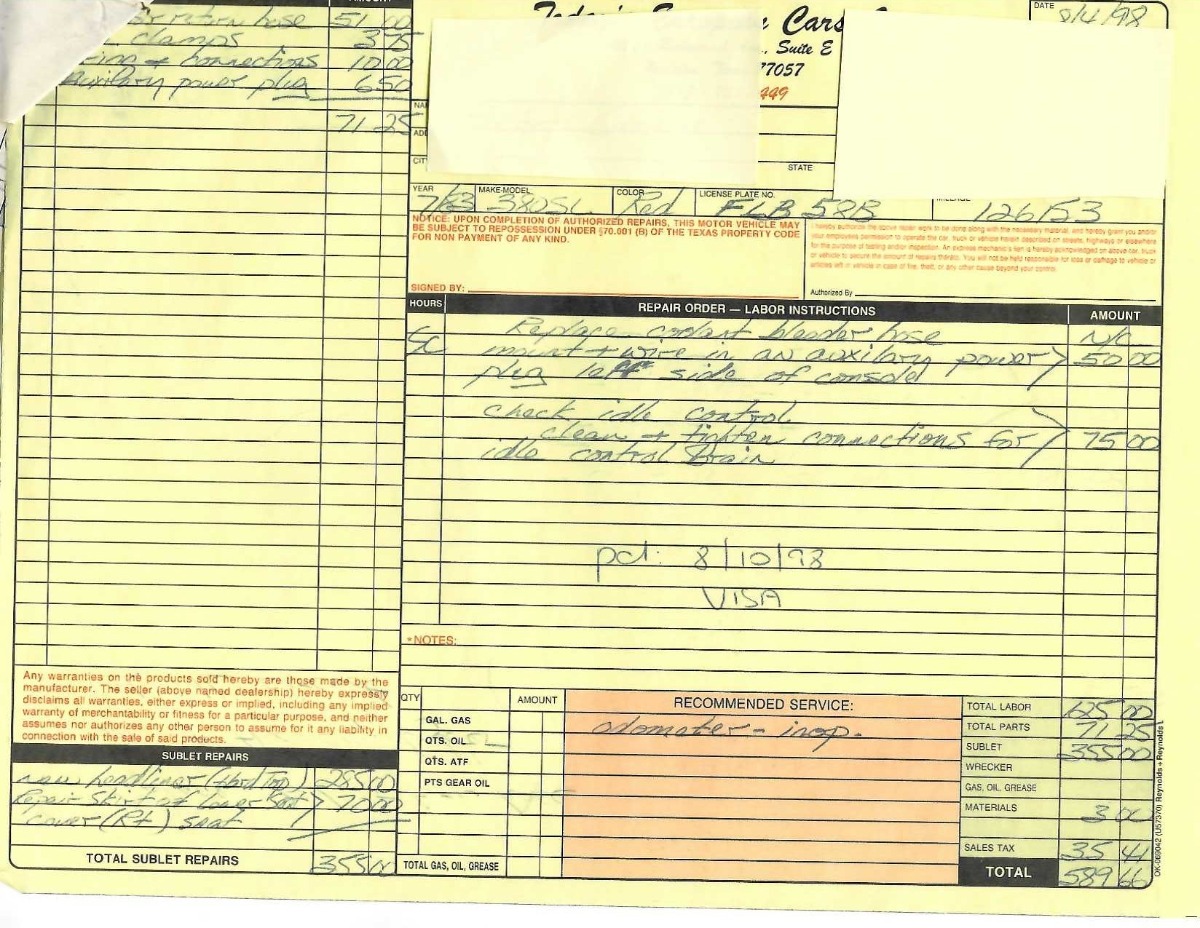 AMOUNT
return hose 51 00
clamps 3 75
& connections 10 00
Auxilary power plug 6 50
71 25
Cars
DATE 8/4/98
, Suite E
77057
449
CITY
STATE
YEAR 7/83 MAKE-MODEL 380SL COLOR Red LICENSE PLATE NO. FLB 58B MILEAGE 126153
NOTICE: UPON COMPLETION OF AUTHORIZED REPAIRS, THIS MOTOR VEHICLE MAY
BE SUBJECT TO REPOSSESSION UNDER §70.001 (B) OF THE TEXAS PROPERTY CODE
FOR NON PAYMENT OF ANY KIND.
SIGNED BY:
I hereby authorize the above repair work to be done along with the necessary material, and hereby grant you and/or
your employees permission to operate the car, truck or vehicle herein described on streets, highways or elsewhere
for the purpose of testing and/or inspection. An express mechanic's lien is hereby acknowledged on above car, truck
or vehicle to secure the amount of repairs thereto. You will not be held responsible for loss or damage to vehicle or
articles left in vehicle in case of fire, theft, or any other cause beyond your control.
Authorized By
HOURS REPAIR ORDER — LABOR INSTRUCTIONS AMOUNT
Replace coolant bleeder hose N/C
SC mount + wire in an auxilary power 50 00
plug left side of consol
check idle control
clean + tighten connections for 75 00
idle control Brain
pd: 8/10/98
VISA
*NOTES:
Any warranties on the products sold hereby are those made by the
manufacturer. The seller (above named dealership) hereby expressly
disclaims all warranties, either express or implied, including any implied
warranty of merchantability or fitness for a particular purpose, and neither
assumes nor authorizes any other person to assume for it any liability in
connection with the sale of said products.
SUBLET REPAIRS
new headliner (hardtop) 285 00
Repair skirt of lower seat 70 00
cover (Rt) seat
TOTAL SUBLET REPAIRS 355 00
QTY AMOUNT
GAL. GAS
QTS. OIL
QTS. ATF
PTS GEAR OIL
TOTAL GAS, OIL, GREASE
RECOMMENDED SERVICE:
odometer - inop.
TOTAL LABOR 125 00
TOTAL PARTS 71 25
SUBLET 355 00
WRECKER
GAS, OIL, GREASE
MATERIALS 3 00
SALES TAX 35 41
TOTAL 589 66
OK-069042 (U57370) Reynolds + Reynolds